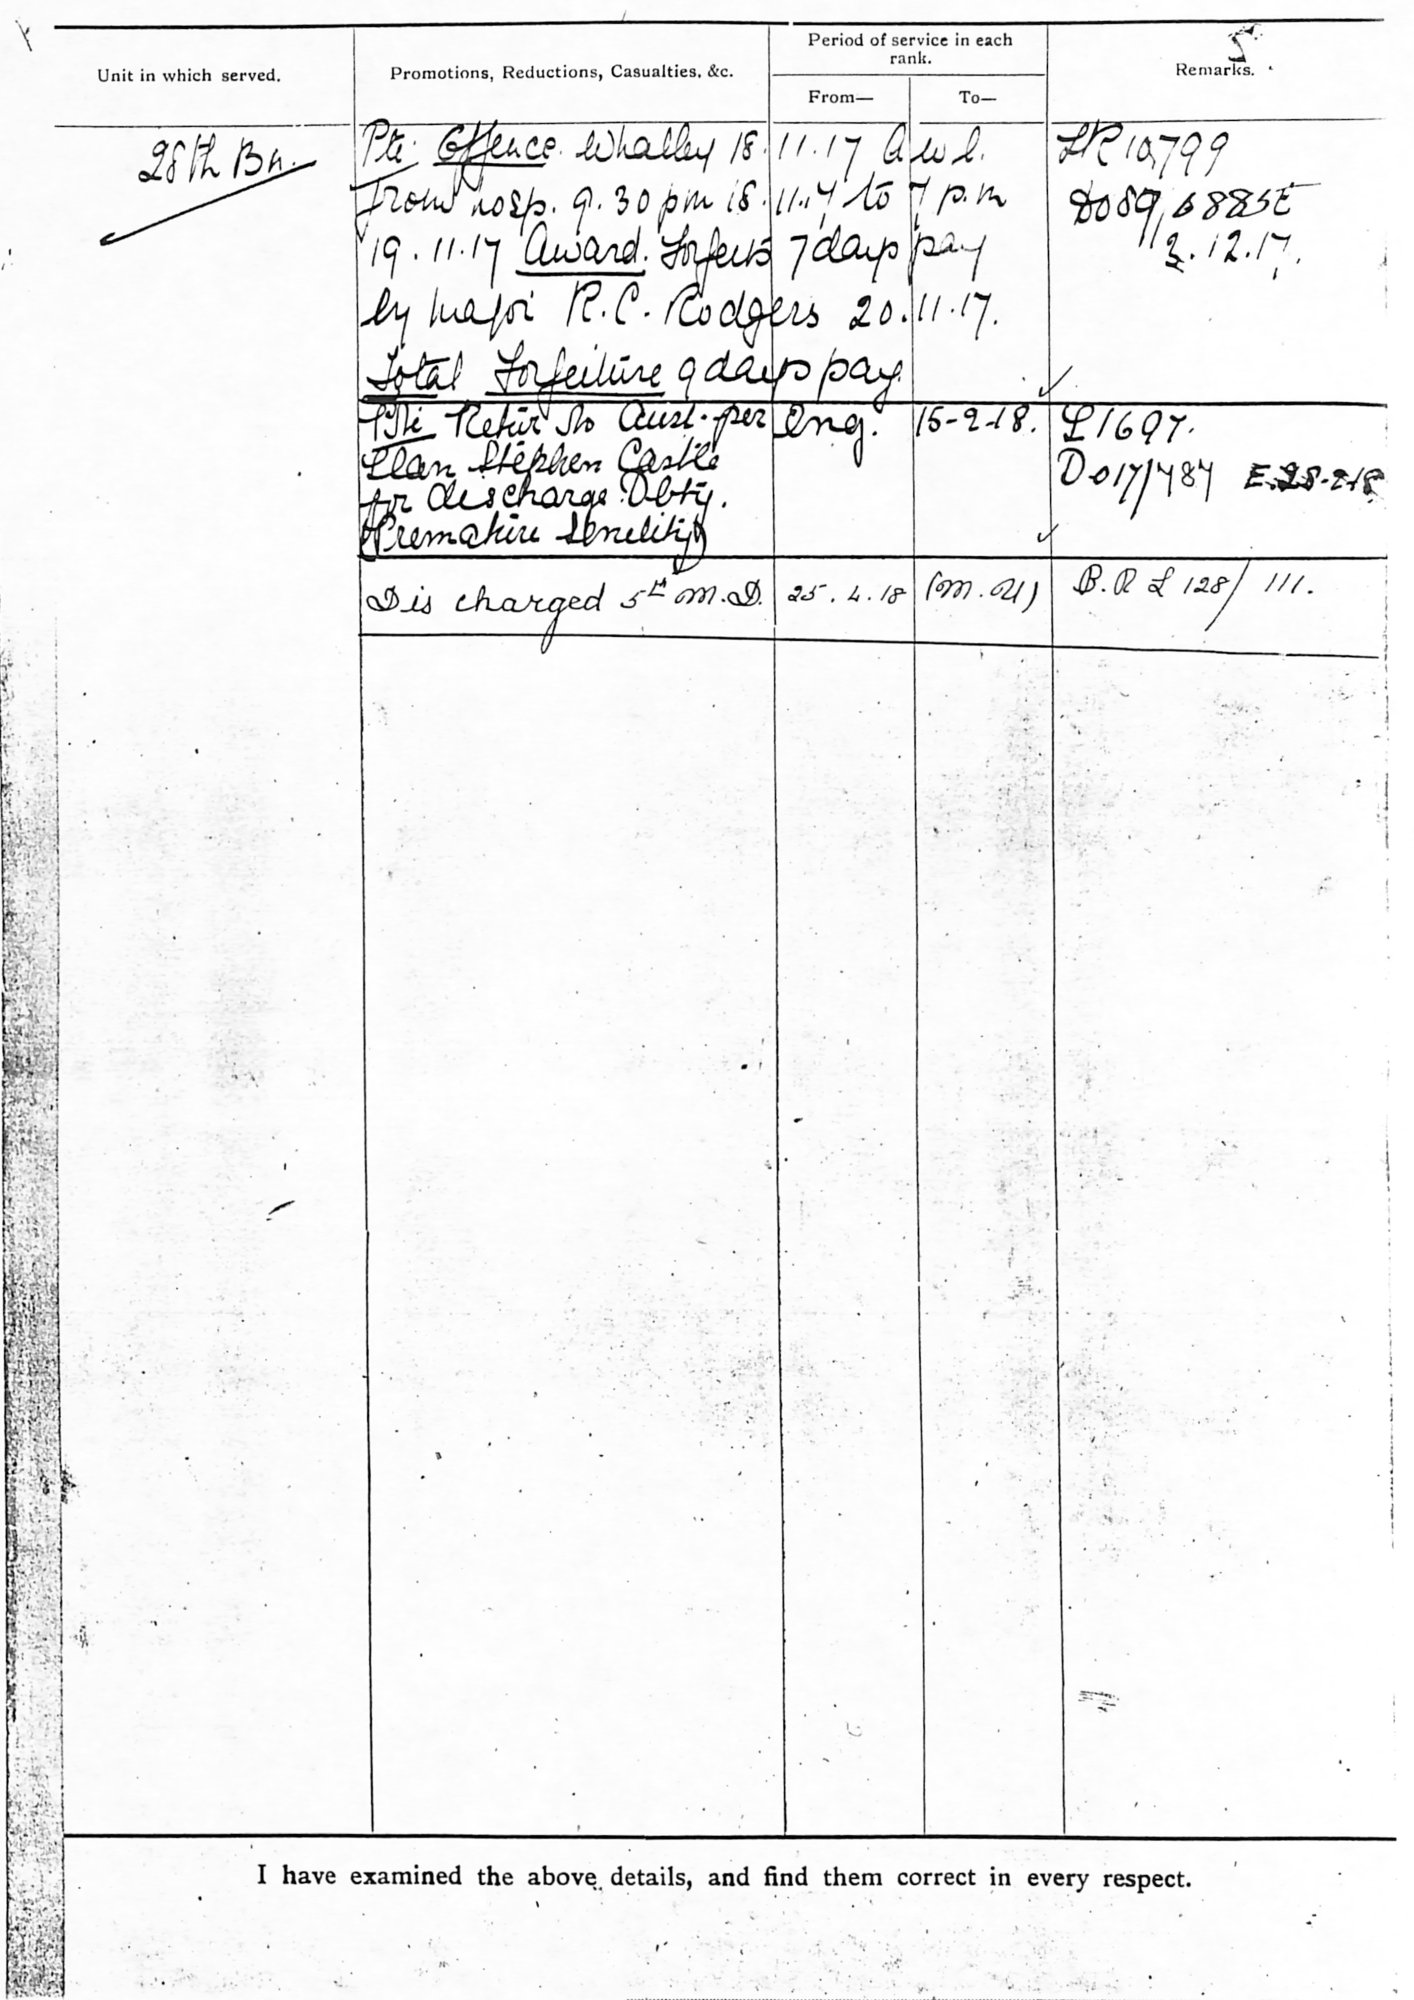 5
Unit in which served.
Promotions, Reductions, Casualties, &c.
Period of service in each
rank.
From—
To—
Remarks.
28th Bn.
Pte. Offence. Whalley 18.11.17 A.W.L.
from hosp. 9.30 pm 18.11.17 to 7 p.m
19.11.17 Award. Forfeits 7 days pay
by Major R.C. Rodgers 20.11.17.
Total Forfeiture 9 days pay.
LR 10799
DO89/6885E
3.12.17.
Pte Retur to Aust. per Eng. 15-2-18. L1697.
Llan Stephen Castle
for discharge Dbty.
(Premature Senility)
DO17/787 E.28-2-18
Discharged 5th M.D. 25.4.18 (M.U) B.R L 128/111.
I have examined the above details, and find them correct in every respect.